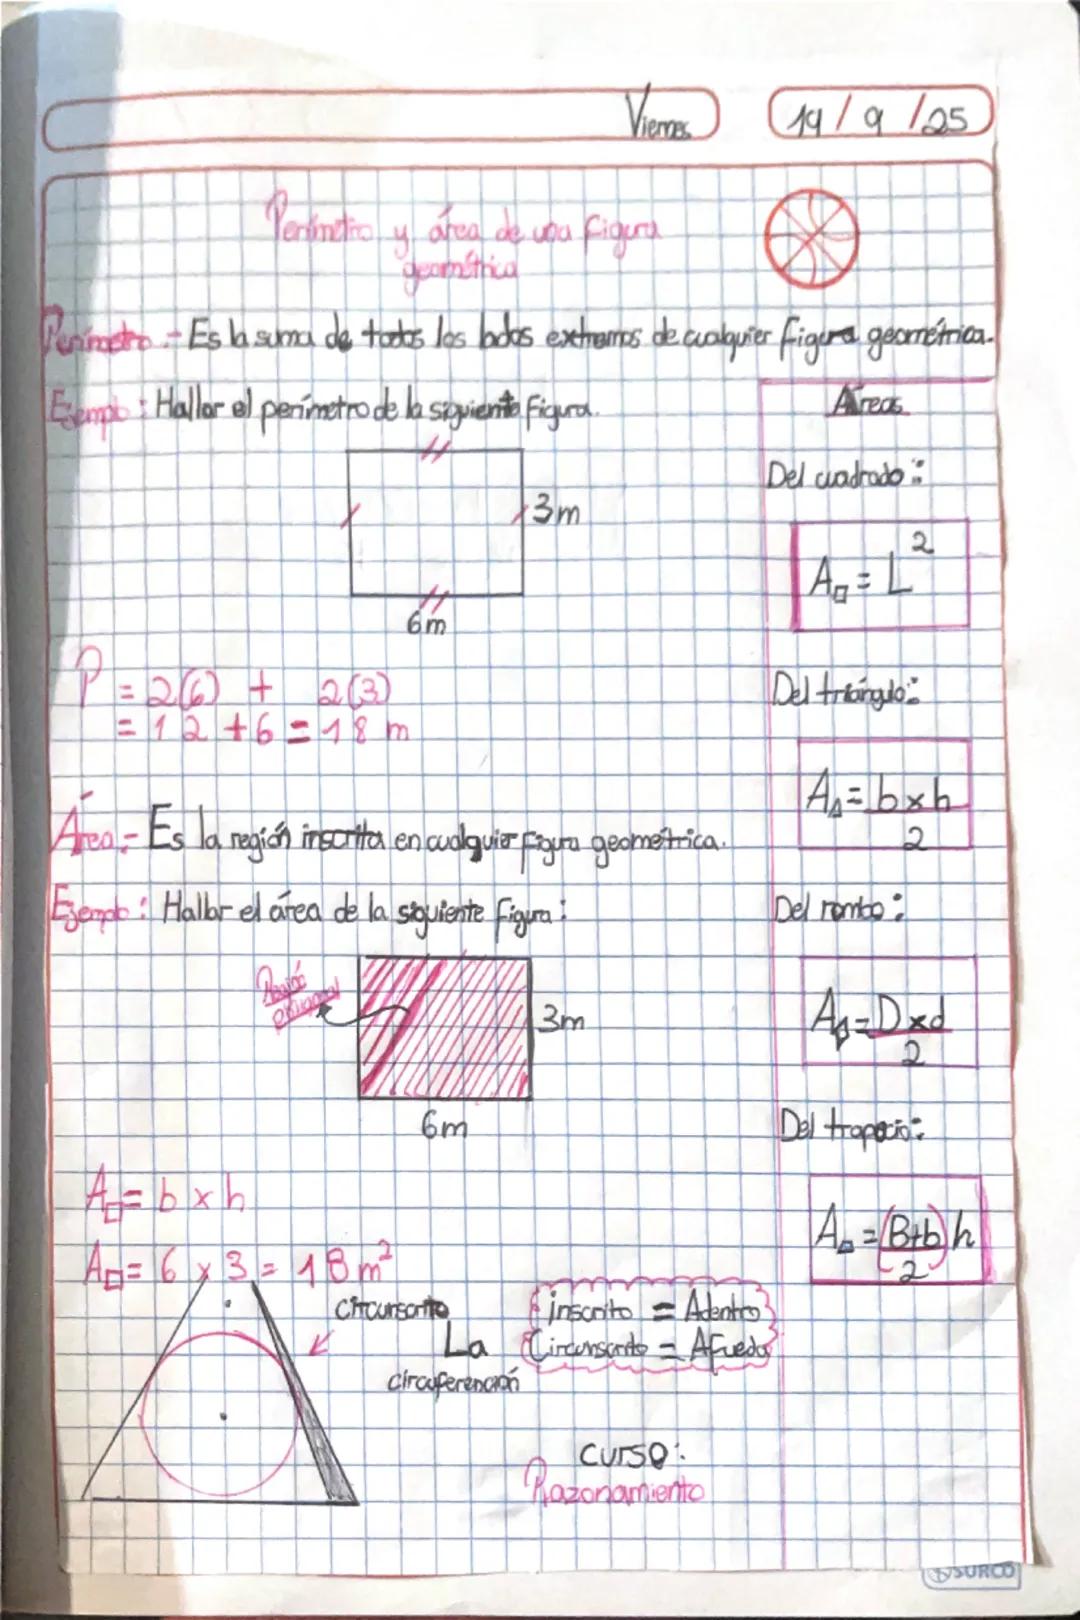 Viernes 19/9/25
Perímetro y área de una figura
geométrica
Perímetro.- Es la suma de todos los lados extremos de cualquier figura geométrica.
Ejemplo: Hallar el perímetro de la siguiente figura.
3m
6m
P = 2(6) + 2(3)
= 12 + 6 = 18 m
Área.- Es la región inscrita en cualquier figura geométrica.
Ejemplo: Hallar el área de la siguiente figura:
Región
3m
6m
A□ = b x h
A□ = 6 x 3 = 18 m²
circunscrito
La
circuferención
inscrito = Adentro
Circunscrito = Afueda
curso:
Razonamiento
Áreas
Del cuadrado:
A□ = L²
Del triángulo:
A△ = b x h
2
Del rombo:
A = D x d
2
Del trapecio:
A = (B+b) h
2
SURCO